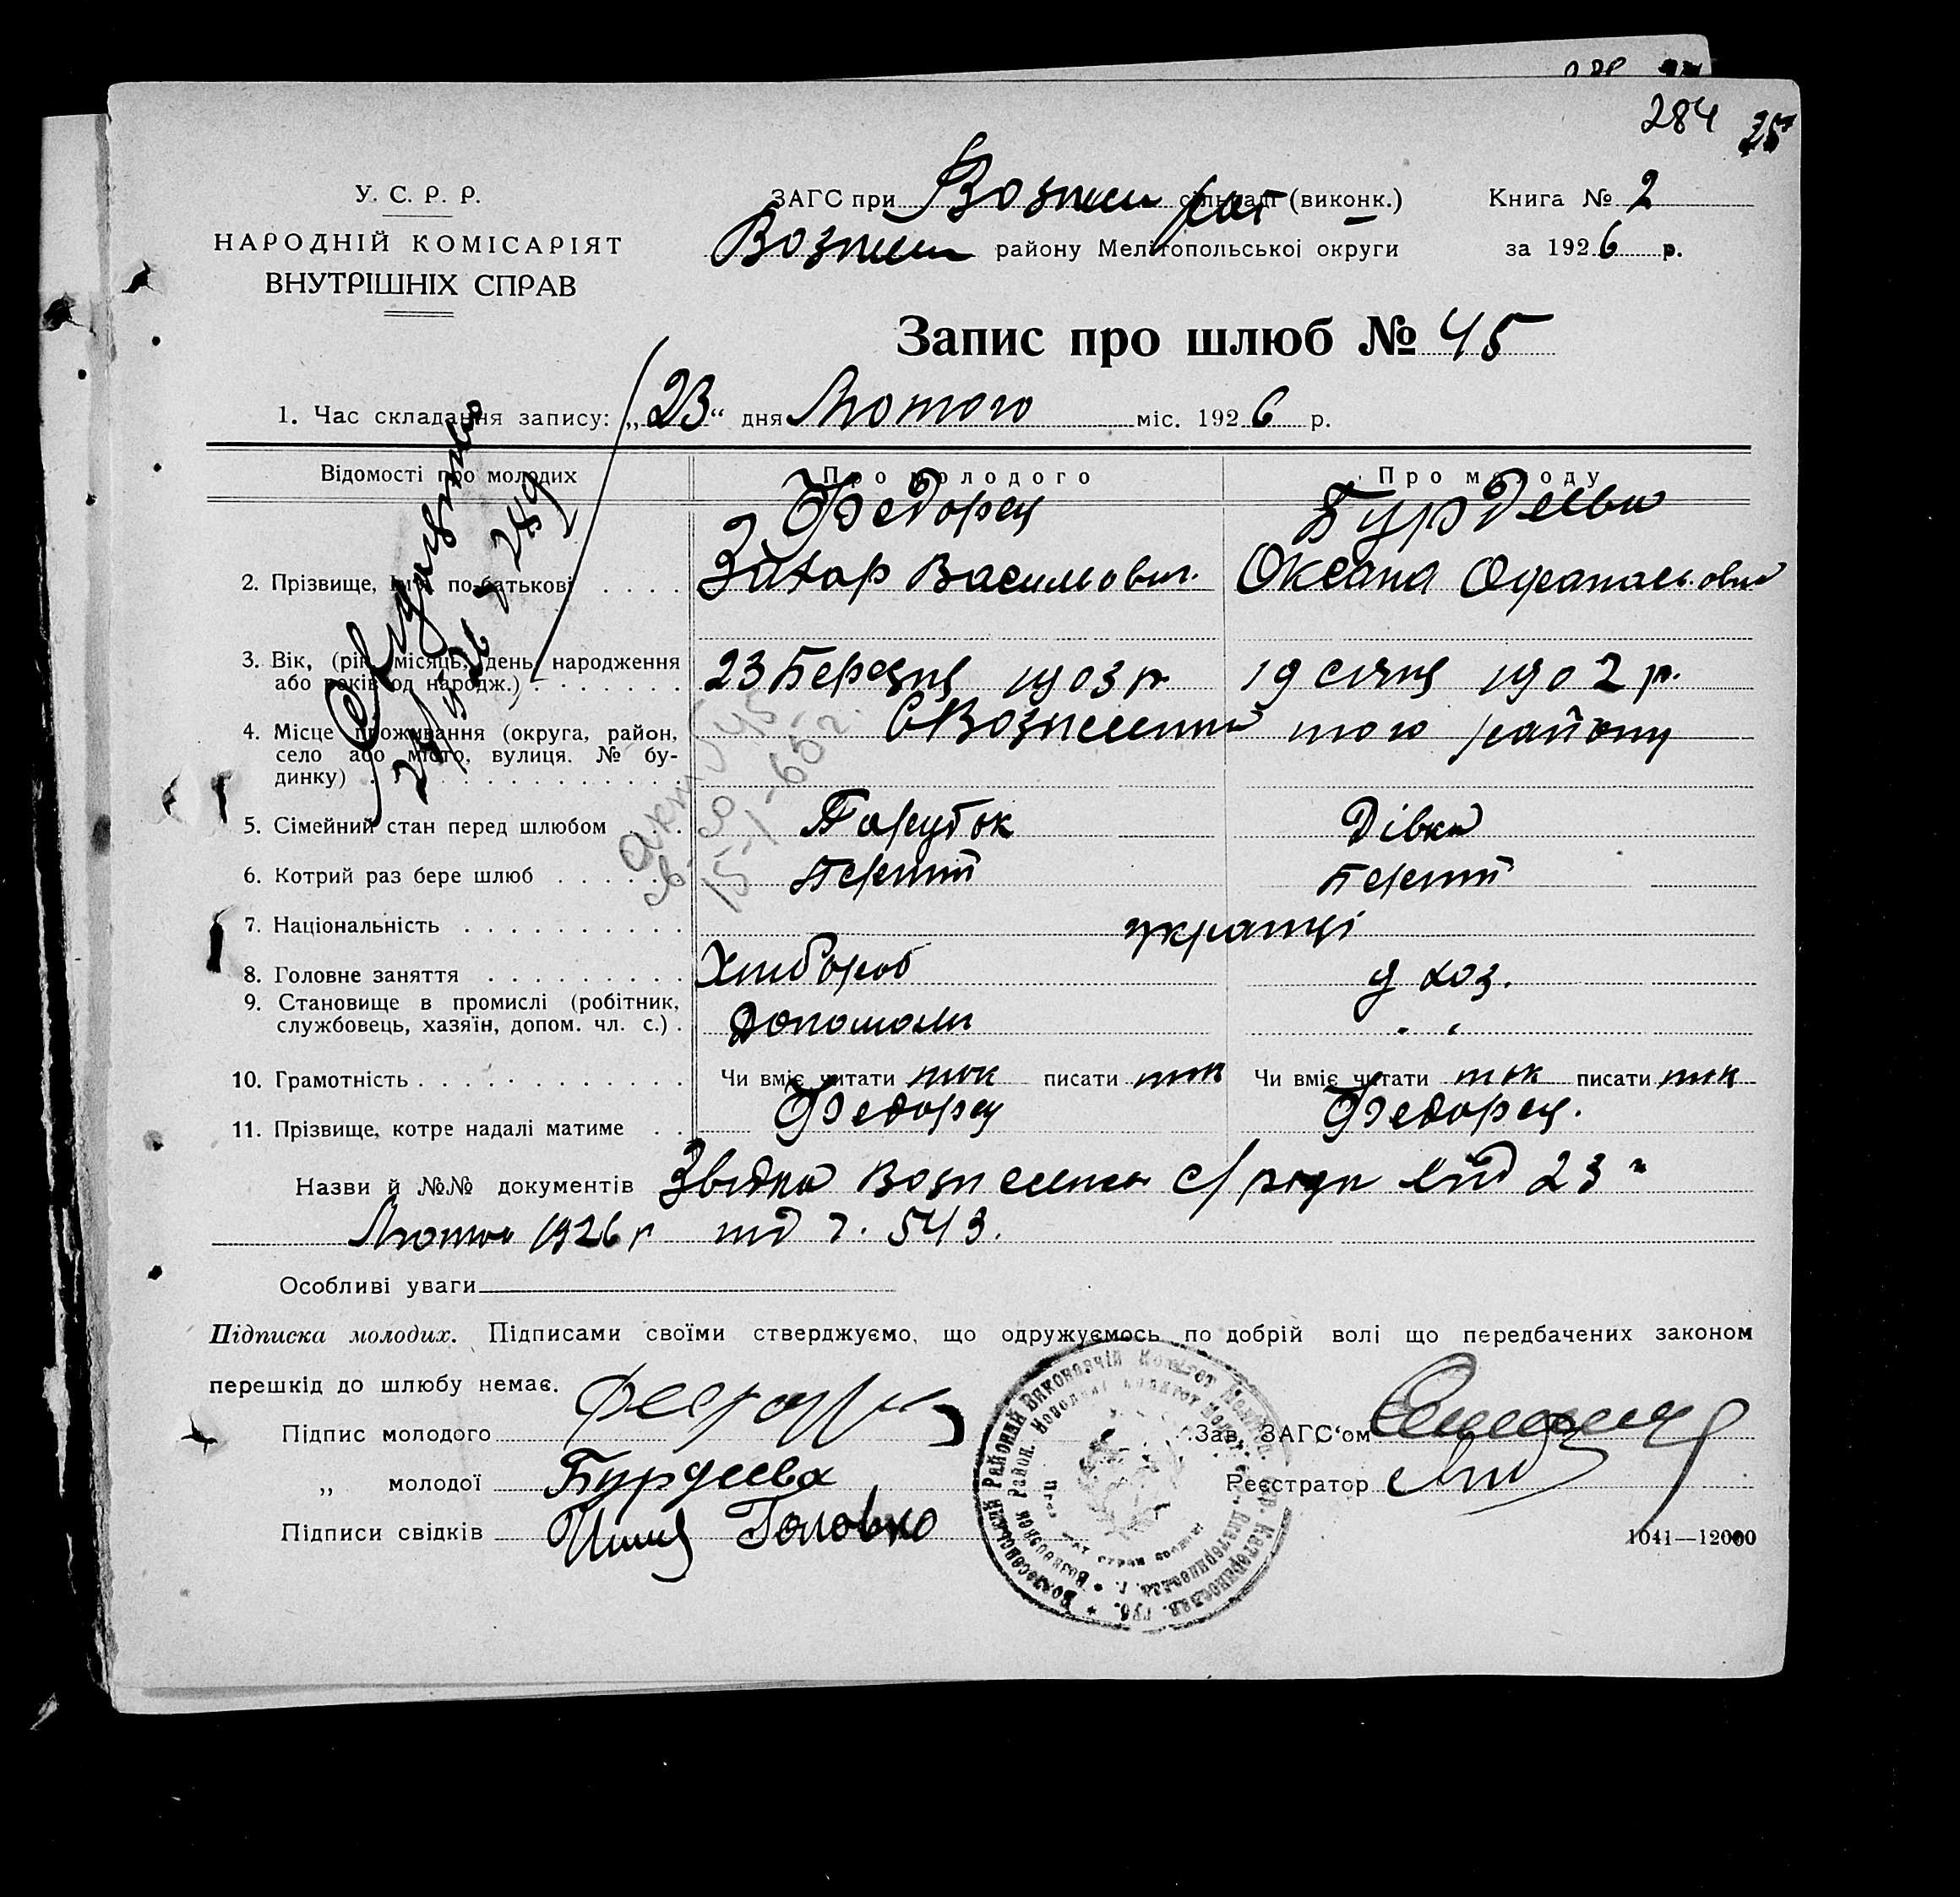 284 25
У. С. Р. Р.
НАРОДНІЙ КОМІСАРІЯТ
ВНУТРІШНІХ СПРАВ
ЗАГС при Вознен рай сільраді (виконк.)
Вознен району Мелітопольської округи
Книга № 2
за 1926 р.
Запис про шлюб № 45
1. Час складання запису: „23“ дня Лютого міс. 1926 р.
Відомості про молодих Про молодого Про молоду
Федорец Бурдеева
2. Прізвище, ім'я по батькові . . . . Захар Васильович. Оксана
3. Вік, (рік, місяць, день, народження
або років од народж.) . . . . . . . 23 Березня 1903 р 19 січня 1902 р.
4. Місце проживання (округа, район,
село або місто, вулиця. № бу-
динку) . . . . . . . . . . . . .
того району
5. Сімейний стан перед шлюбом . . Парубок Дівка
6. Котрий раз бере шлюб . . . . . . Перший Перший
7. Національність . . . . . . . . . . українці
8. Головне заняття . . . . . . . . . Хлібороб д хоз.
9. Становище в промислі (робітник,
службовець, хазяїн, допом. чл. с.) .
10. Грамотність . . . . . . . . . . . . Чи вміє читати так писати так Чи вміє читати так писати так
11. Прізвище, котре надалі матиме . . Федорец Федорец.
Назви й №№ документів с/ ради від 23
1926 р 543.
Особливі уваги
Підписка молодих. Підписами своїми стверджуємо, що одружуємось по добрій волі що передбачених законом
перешкід до шлюбу немає.
Підпис молодого
„ молодої Бурдеева
Підписи свідків Головко
Зав. ЗАГС'ом
Реєстратор
1041—12000
акт № 45
15-1-65 г.